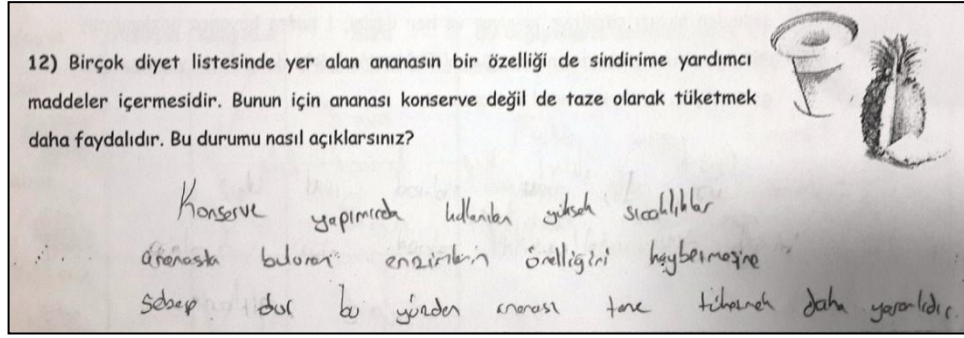 12) Birçok diyet listesinde yer alan ananasın bir özelliği de sindirime yardımcı
maddeler içermesidir. Bunun için ananası konserve değil de taze olarak tüketmek
daha faydalıdır. Bu durumu nasıl açıklarsınız?
Konserve yapımında kullanılan yüksek sıcaklıklar
ananasta bulunan enzimlerin özelliğini kaybetmesine
sebep olur bu yüzden ananası taze tüketmek daha yararlıdır.